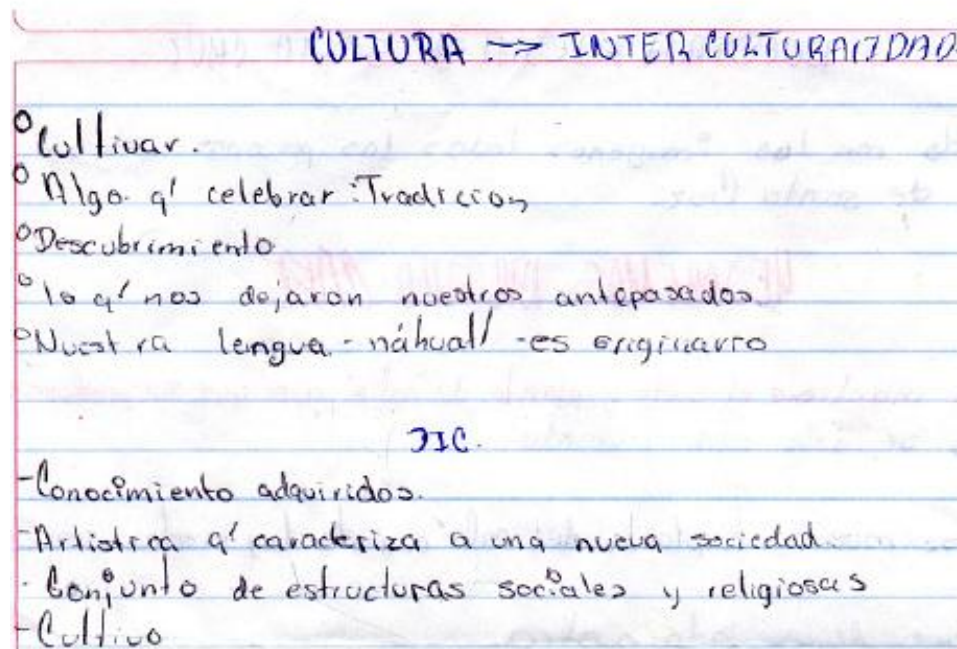 CULTURA → INTERCULTURALIDAD
Cultivar.
Algo q' celebrar: Tradicion
Descubrimiento
lo q' nos dejaron nuestros antepasados
Nuestra lengua - náhuatl - es originario
DIC.
- Conocimiento adquiridos.
- Artistica q' caracteriza a una nueva sociedad.
- Conjunto de estructuras sociales y religiosas
- Cultivo